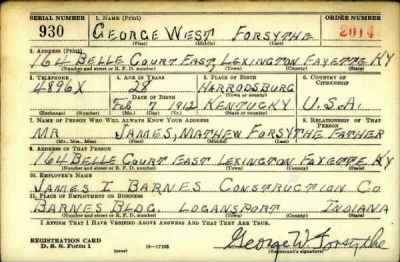 SERIAL NUMBER 1. NAME ORDER NUMBER
930 GEORGE WEST FORSYTHE 2014
(First) (Middle) (Last)
2. ADDRESS
164 BELLE COURT EAST, LEXINGTON FAYETTE KY
(Number and street or R. F. D. number) (Town) (County) (State)
3. TELEPHONE 4. AGE IN YEARS 5. PLACE OF BIRTH 6. COUNTRY OF CITIZENSHIP
4896X 28 HARRODSBURG
DATE OF BIRTH (Town or county)
Feb 7 1912 KENTUCKY U.S.A.
(Exchange) (Number) (Mo.) (Day) (Yr.) (State or country)
7. NAME OF PERSON WHO WILL ALWAYS KNOW YOUR ADDRESS 8. RELATIONSHIP OF THAT PERSON
MR JAMES, MATHEW FORSYTHE FATHER
(Mr., Mrs., Miss) (First) (Middle) (Last)
9. ADDRESS OF THAT PERSON
164 BELLE COURT EAST LEXINGTON FAYETTE KY
(Number and street or R. F. D. number) (Town) (County) (State)
10. EMPLOYER'S NAME
JAMES I. BARNES CONSTRUCTION CO
11. PLACE OF EMPLOYMENT OR BUSINESS
BARNES BLDG. LOGANSPORT INDIANA
(Number and street or R. F. D. number) (Town) (County) (State)
I AFFIRM THAT I HAVE VERIFIED ABOVE ANSWERS AND THAT THEY ARE TRUE.
REGISTRATION CARD
D. S. S. Form 1 (over) 16—17105 George W Forsythe